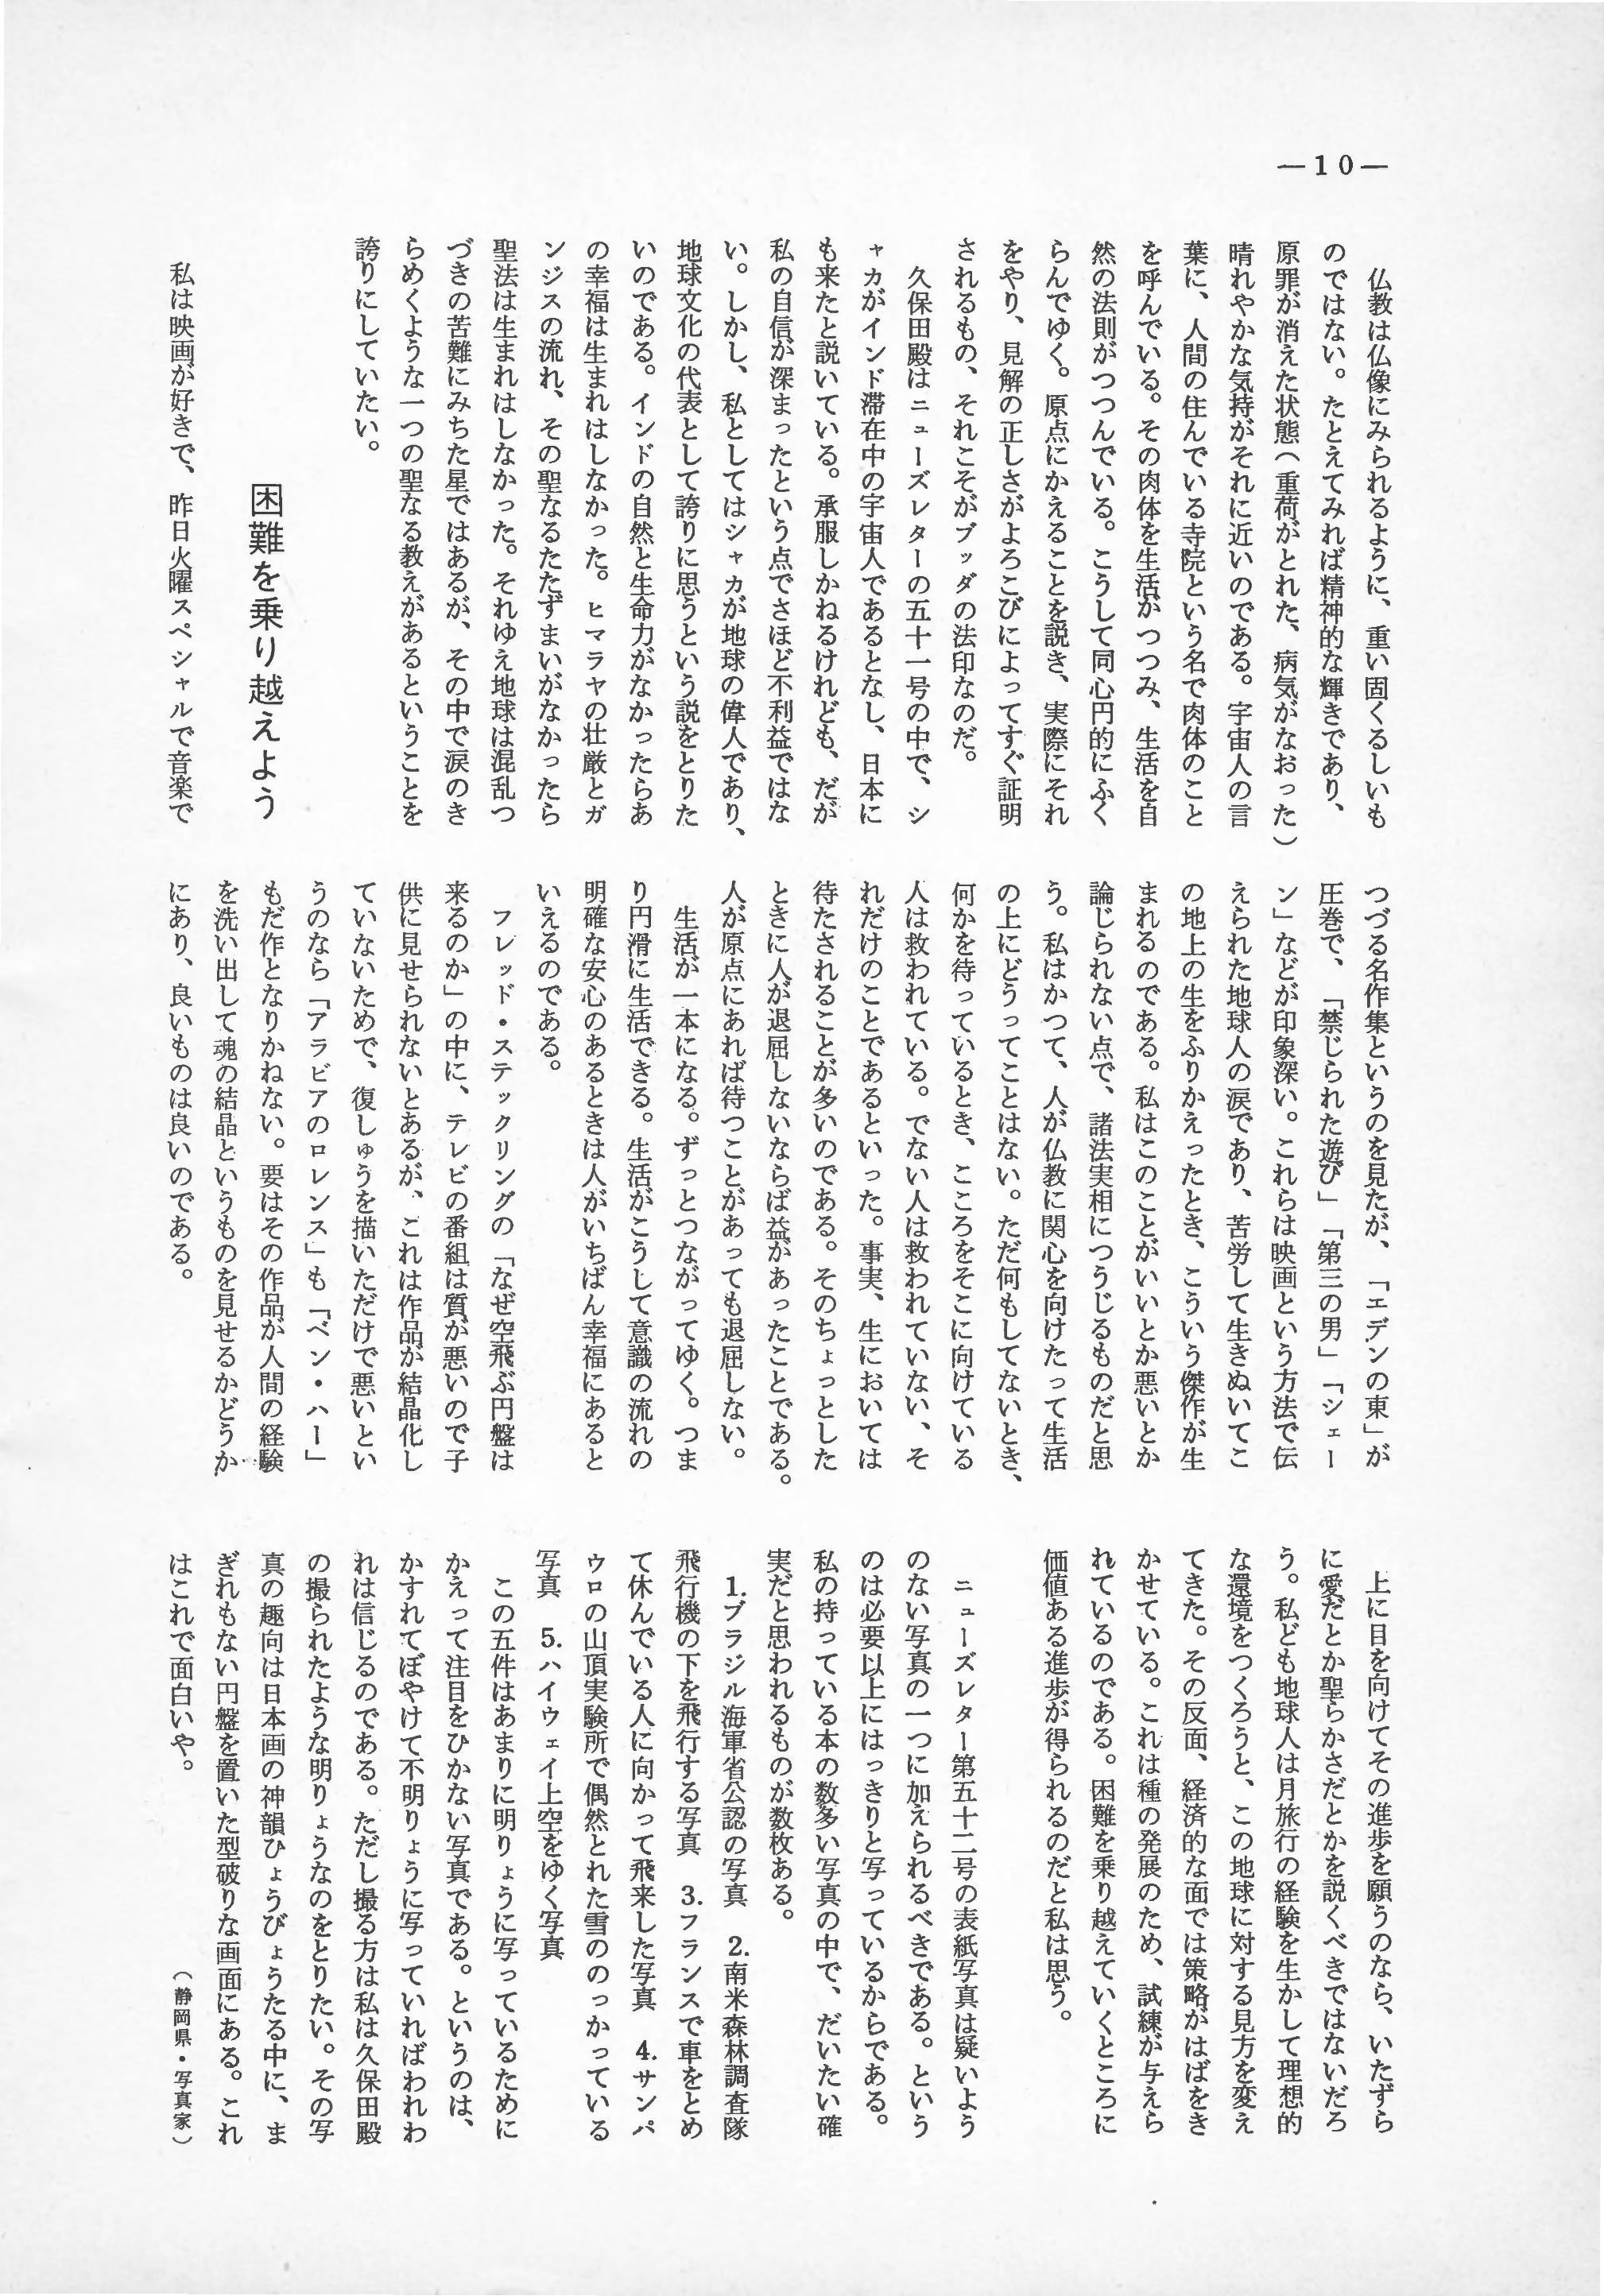 —10—
仏教は仏像にみられるように、重い固くるしいも
のではない。たとえてみれば精神的な輝きであり、
原罪が消えた状態(重荷がとれた、病気がなおった)
晴れやかな気持がそれに近いのである。宇宙人の言
葉に、人間の住んでいる寺院という名で肉体のこと
を呼んでいる。その肉体を生活がつつみ、生活を自
然の法則がつつんでいる。こうして同心円的にふく
らんでゆく。原点にかえることを説き、実際にそれ
をやり、見解の正しさがよろこびによってすぐ証明
されるもの、それこそがブッダの法印なのだ。
久保田殿はニューズレターの五十一号の中で、シ
ャカがインド滞在中の宇宙人であるとなし、日本に
も来たと説いている。承服しかねるけれども、だが
私の自信が深まったという点でさほど不利益ではな
い。しかし、私としてはシャカが地球の偉人であり、
地球文化の代表として誇りに思うという説をとりた
いのである。インドの自然と生命力がなかったらあ
の幸福は生まれはしなかった。ヒマラヤの壮厳とガ
ンジスの流れ、その聖なるたたずまいがなかったら
聖法は生まれはしなかった。それゆえ地球は混乱つ
づきの苦難にみちた星ではあるが、その中で涙のき
らめくような一つの聖なる教えがあるということを
誇りにしていたい。
困難を乗り越えよう
私は映画が好きで、昨日火曜スペシャルで音楽で
つづる名作集というのを見たが、「エデンの東」が
圧巻で、「禁じられた遊び」「第三の男」「シェー
ン」などが印象深い。これらは映画という方法で伝
えられた地球人の涙であり、苦労して生きぬいてこ
の地上の生をふりかえったとき、こういう傑作が生
まれるのである。私はこのことがいいとか悪いとか
論じられない点で、諸法実相につうじるものだと思
う。私はかつて、人が仏教に関心を向けたって生活
の上にどうってことはない。ただ何もしてないとき、
何かを待っているとき、こころをそこに向けている
人は救われている。でない人は救われていない、そ
れだけのことであるといった。事実、生においては
待たされることが多いのである。そのちょっとした
ときに人が退屈しないならば益があったことである。
人が原点にあれば待つことがあっても退屈しない。
生活が一本になる。ずっとつながってゆく。つま
り円滑に生活できる。生活がこうして意識の流れの
明確な安心のあるときは人がいちばん幸福にあると
いえるのである。
フレッド・ステックリングの「なぜ空飛ぶ円盤は
来るのか」の中に、テレビの番組は質が悪いので子
供に見せられないとあるが、これは作品が結晶化し
ていないためで、復しゅうを描いただけで悪いとい
うのなら「アラビアのロレンス」も「ベン・ハー」
もだ作となりかねない。要はその作品が人間の経験
を洗い出して魂の結晶というものを見せるかどうか
にあり、良いものは良いのである。
上に目を向けてその進歩を願うのなら、いたずら
に愛だとか聖らかさだとかを説くべきではないだろ
う。私ども地球人は月旅行の経験を生かして理想的
な環境をつくろうと、この地球に対する見方を変え
てきた。その反面、経済的な面では策略がはばをき
かせている。これは種の発展のため、試練が与えら
れているのである。困難を乗り越えていくところに
価値ある進歩が得られるのだと私は思う。
ニューズレター第五十二号の表紙写真は疑いよう
のない写真の一つに加えられるべきである。という
のは必要以上にはっきりと写っているからである。
私の持っている本の数多い写真の中で、だいたい確
実だと思われるものが数枚ある。
1.ブラジル海軍省公認の写真 2.南米森林調査隊
飛行機の下を飛行する写真 3.フランスで車をとめ
て休んでいる人に向かって飛来した写真 4.サンパ
ウロの山頂実験所で偶然とれた雪ののっかっている
写真 5.ハイウェイ上空をゆく写真
この五件はあまりに明りょうに写っているために
かえって注目をひかない写真である。というのは、
かすれてぼやけて不明りょうに写っていればわれわ
れは信じるのである。ただし撮る方は私は久保田殿
の撮られたような明りょうなのをとりたい。その写
真の趣向は日本画の神韻ひょうびょうたる中に、ま
ぎれもない円盤を置いた型破りな画面にある。これ
はこれで面白いや。
(静岡県・写真家)